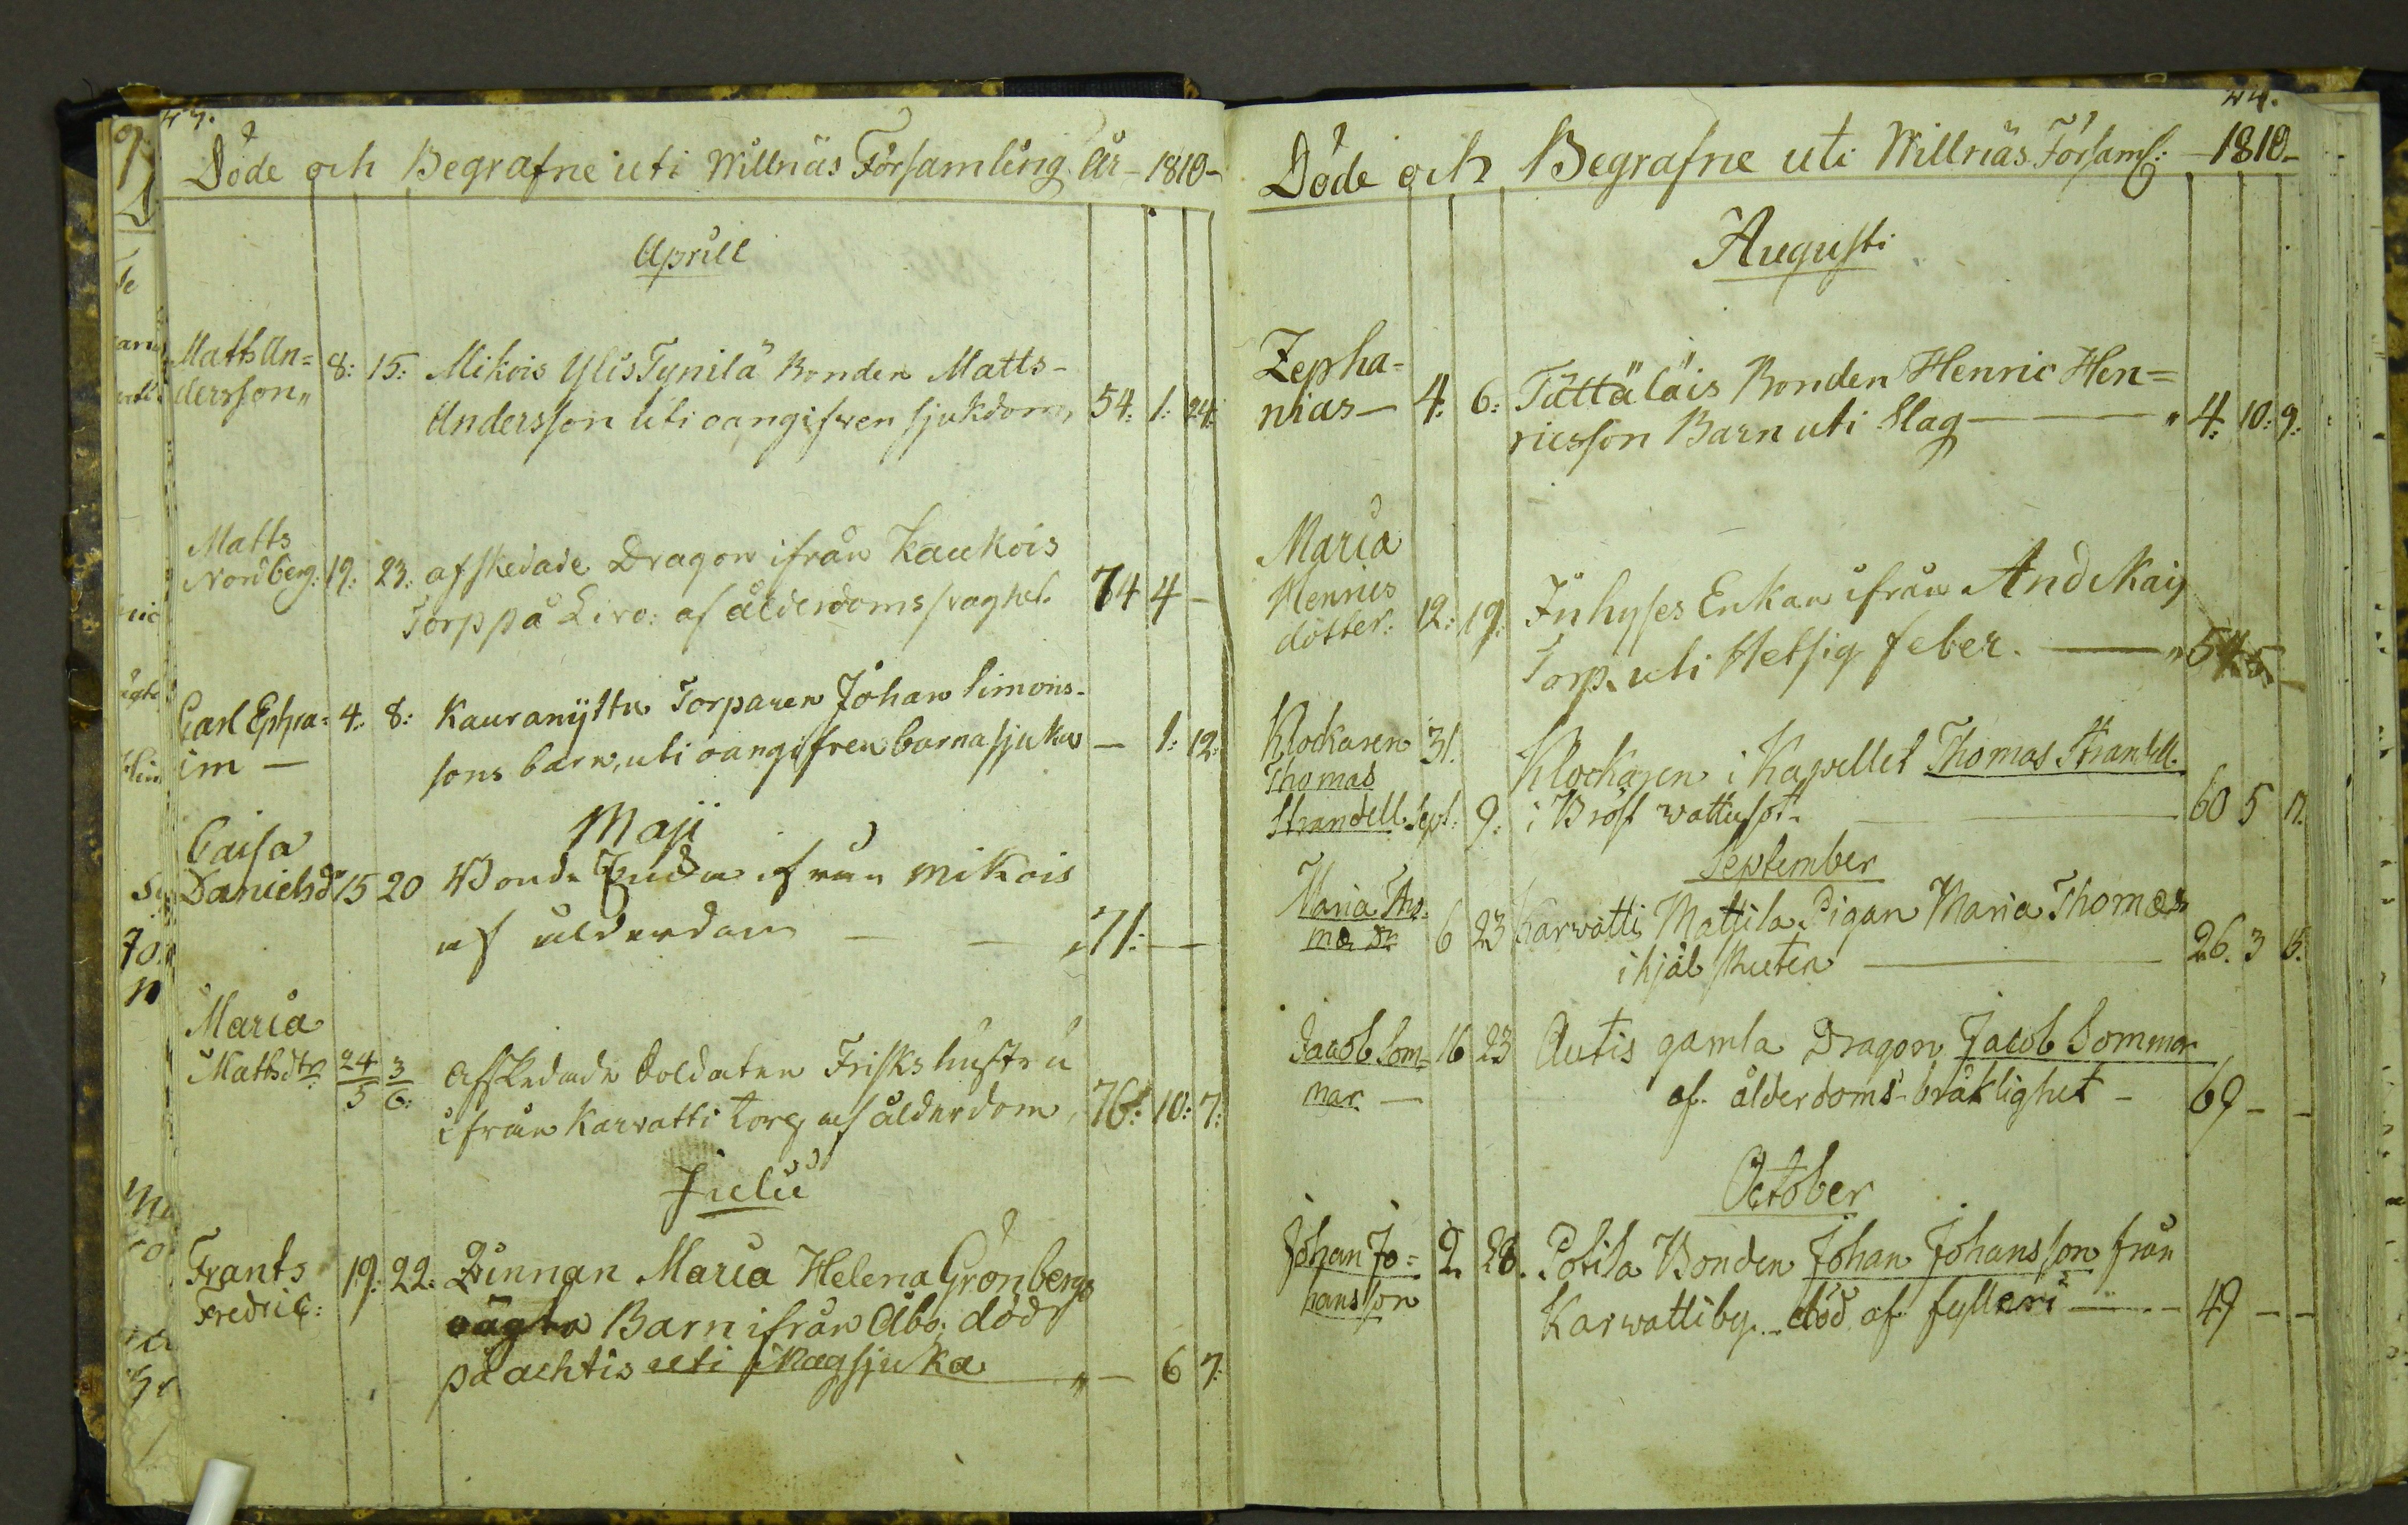 43.
Döde och Begrafne uti Willnäs Församling År - 1810 -
Aprill
Matts An= 8: 15: Mikois Ylis Tynilä Bonden Matts-
dersson „ Andersson uti oangifven sjukdom, 54: 1: 24:
Matts
Nordberg: 19: 23: afskedade Dragon ifrån Kaukois
Torp på Livo: af ålderdoms svaghet. 74 4 -
Carl Ephra= 4: 8: Kauranyttu Torparen Johan Simons-
im - sons barn, uti oangifven barnasjuka - 1: 12:
Maji
Caisa
Danielsdr 15 20 Bonde Enkan ifrån Mikois
af ålderdom - - 71: -
Maria
Mattsdtr 24/5 3/6: Afskedade Soldaten Frisks hustru
ifrån Karvatti torp, af ålderdom, 76: 10: 7:
Julii
Frants 19: 22: Qvinnan Maria Helena Grönbergs
Fredric: oägta Barn ifrån Åbo, död
på achtis uti slagsjuka „ - 6 7:
44.
Döde och Begrafne uti Willnäs Församl: - 1810 -
Augusti
Zepha-
nias - 4: 6: Tättäläis Bonden Henric Hen=
ricsson Barn uti Slag - „ 4: 10: 9:
Maria
Henrics
dotter: 12: 19: Inhyses Enkan ifrån Andskais
Torp. uti Hetsig feber. - „ 54 5 -
Klockaren 31. Klockaren i Kapellet Thomas Strandell.
Thomas
Strandell. Sept: 9: i Bröst wattusot - 60 5 11.
September
Maria Tho-
mae dr 6 23 Karwatti Mattila Pigan Maria Thomædr
ihjäl skuten - 26. 3 15.
Jacob Som- 16 23 Autis gamla Dragon Jacob Sommar,
mar - af ålderdoms-bräklighet - 69 - -
October
Johan Jo= 2. 28. Potila Bonden Johan Johansson från
hansson Karwattiby. död af fylleri - 49 - -